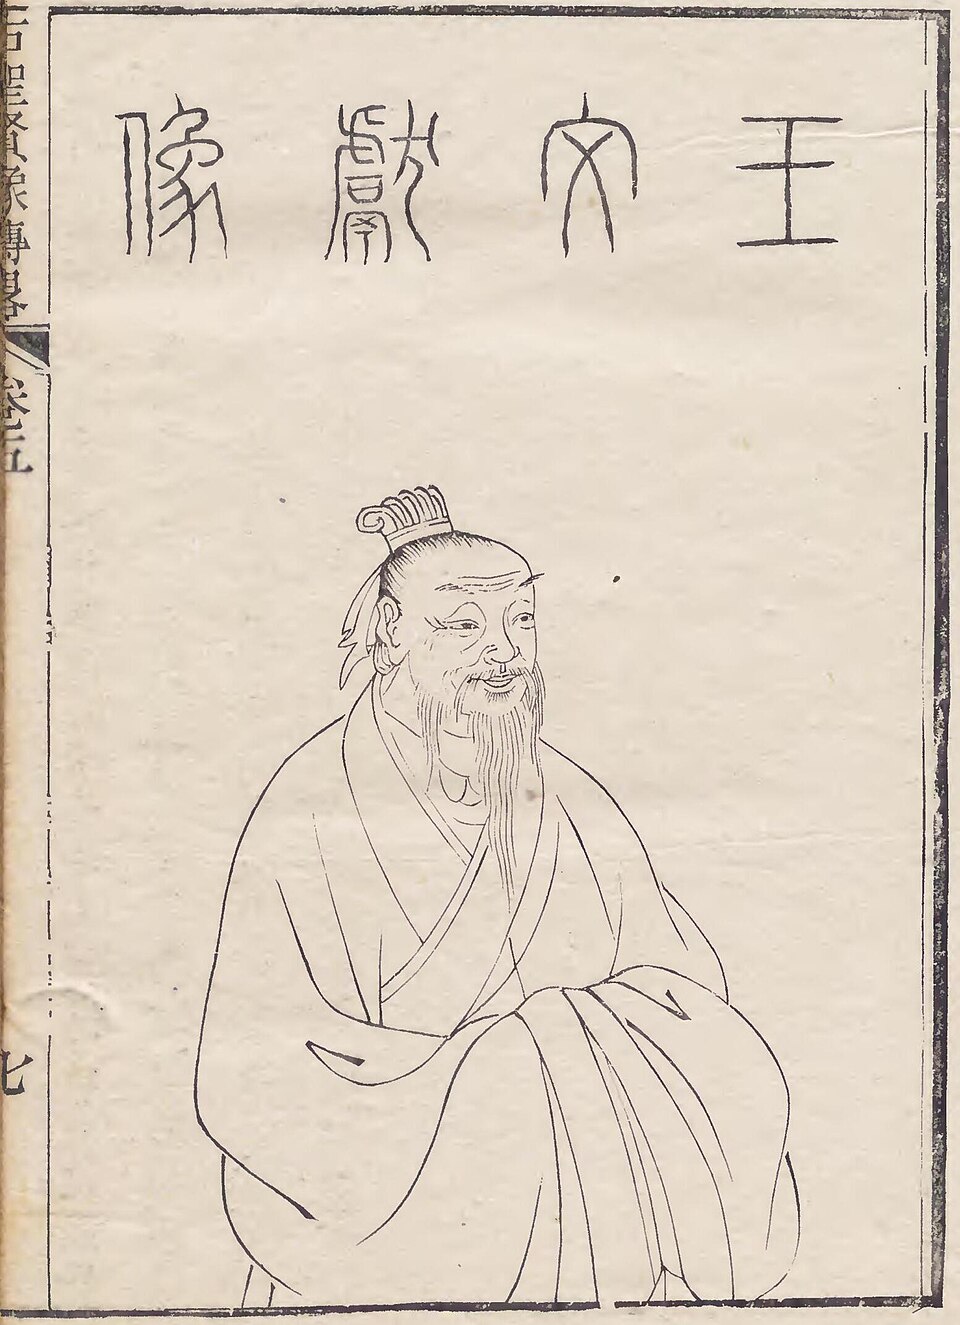 王文獻像
古聖賢像傳畧
卷五
七